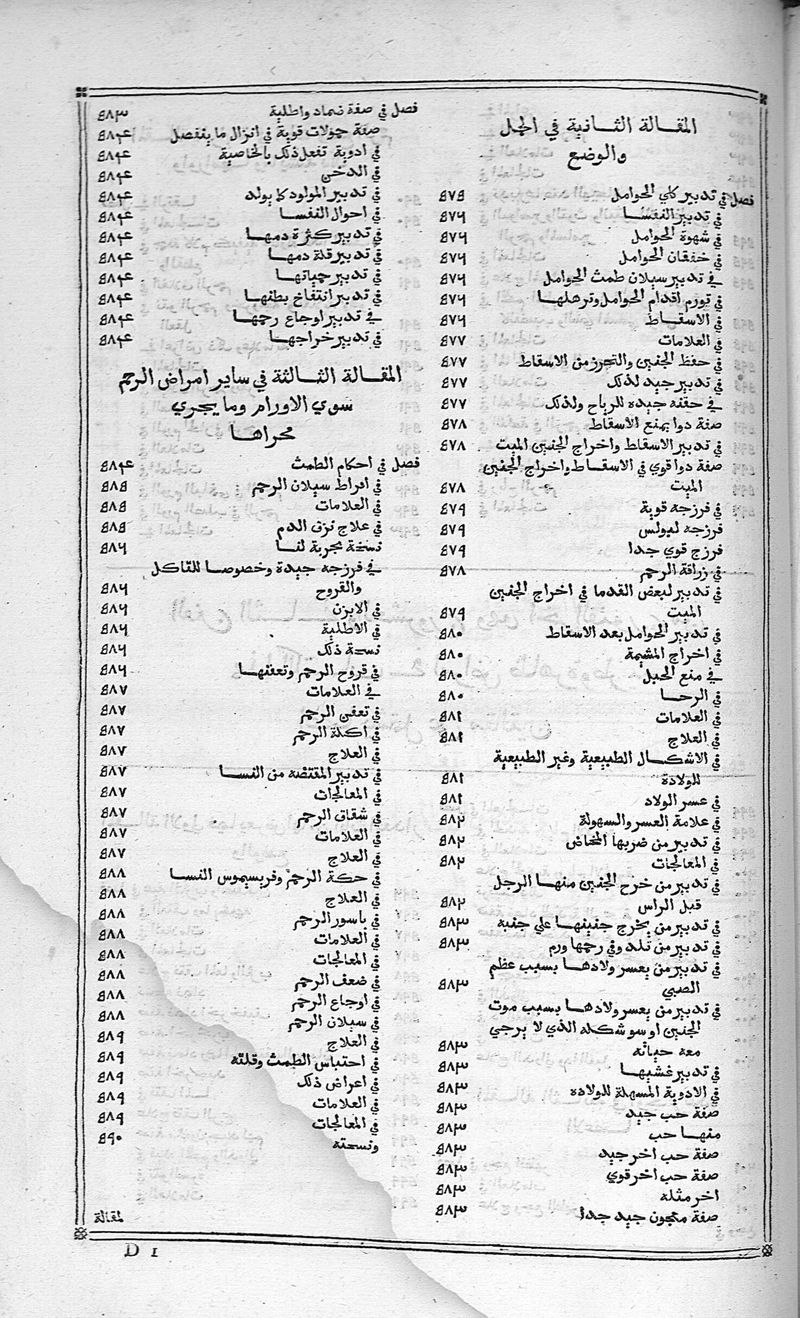 المقالة الثانية في الحبل
والوضع
فصل في تدبير كلي الحوامل ٥٧٥
في تدبير النفسا ٥٧٦
في شهوة الحوامل ٥٧٦
في خفقان الحوامل ٥٧٦
في تدبير سيلان طمث الحوامل ٥٧٦
في تورم اقدام الحوامل وترهلها ٥٧٦
في الاسقاط ٥٧٦
في العلامات ٥٧٧
في حفظ الجنين والتحرز من الاسقاط ٥٧٧
في تدبير جيد لذلك ٥٧٧
في حقنه جيده للرياح ولذلك ٥٧٧
صفة دوا يمنع الاسقاط ٥٧٨
في تدبير الاسقاط واخراج الجنين الميت ٥٧٨
صفة دوا قوي في الاسقاط واخراج الجنين
الميت ٥٧٨
في فرزجه قوية ٥٧٩
فرزجه لبولس ٥٧٩
فرزج قوي جدا ٥٧٩
في زراقة الرحم ٥٧٨
في تدبير لبعض القدما في اخراج الجنين
الميت ٥٧٩
في تدبير الحوامل بعد الاسقاط ٥٨٠
في اخراج المشيمة ٥٨٠
في منع الحبل ٥٨٠
في الرحا ٥٨٠
في العلامات ٥٨١
في العلاج ٥٨١
في الاشكال الطبيعية وغير الطبيعية
للولادة ٥٨١
في عسر الولاد ٥٨١
في علامة العسر والسهولة ٥٨٢
في تدبير من ضربها المخاض ٥٨٢
في المعالجات ٥٨٢
في تدبير من خرج الجنين منها الرجل
قبل الراس ٥٨٢
في تدبير من يخرج جنينها علي جنبه ٥٨٣
في تدبير من تلد وفي رحمها ورم ٥٨٣
في تدبير من يعسر ولادها بسبب عظم
الصبي ٥٨٣
في تدبير من يعسر ولادها بسبب موت
الجنين او سو شكله الذي لا يرجي
معه حياته ٥٨٣
في تدبير غشيها ٥٨٣
في الادوية المسهلة للولاده ٥٨٣
صفة حب جيد ٥٨٣
منها حب ٥٨٣
صفة حب اخر جيد ٥٨٣
صفة حب اخر قوي ٥٨٣
اخر مثله ٥٨٣
صفة معجون جيد جدا ٥٨٣
فصل في صفة ضماد واطلية ٥٨٣
صفة حمولات قوية في انزال ما ينفصل ٥٨٤
في ادوية تفعل ذلك بالخاصية ٥٨٤
في الدخن ٥٨٤
في تدبير المولود كما يولد ٥٨٤
في احوال النفسا ٥٨٤
في تدبير كثرة دمها ٥٨٤
في تدبير قلة دمها ٥٨٤
في تدبير حمياتها ٥٨٤
في تدبير انتفاخ بطنها ٥٨٤
في تدبير اوجاع رحمها ٥٨٤
في تدبير خراجها ٥٨٤
المقالة الثالثة في ساير امراض الرحم
سوي الاورام وما يجري
مجراها
فصل في احكام الطمث ٥٨٤
في افراط سيلان الرحم ٥٨٥
في العلامات ٥٨٥
في علاج نزف الدم ٥٨٥
نسخة مجربة لنا ٥٨٦
في فرزجه جيدة وخصوصا للتاكل
والقروح ٥٨٦
في الابزن ٥٨٦
في الاطلية ٥٨٦
نسخة ذلك ٥٨٦
في قروح الرحم وتعفنها ٥٨٦
في العلامات ٥٨٧
في تعفن الرحم ٥٨٧
في اكلة الرحم ٥٨٧
في العلاج ٥٨٧
في تدبير المقتضه من النسا ٥٨٧
في المعالجات ٥٨٧
في شقاق الرحم ٥٨٧
في العلامات ٥٨٧
في العلاج ٥٨٧
في حكة الرحم وفريسيموس النسا ٥٨٨
في العلاج ٥٨٨
في باسور الرحم ٥٨٨
في العلامات ٥٨٨
في المعالجات ٥٨٨
في ضعف الرحم ٥٨٨
في اوجاع الرحم ٥٨٨
في سيلان الرحم ٥٨٨
في العلاج ٥٨٩
في احتباس الطمث وقلته ٥٨٩
في اعراض ذلك ٥٨٩
في العلامات ٥٨٩
في المعالجات ٥٨٩
ونسخته ٥٩٠
لمقالة
D 1